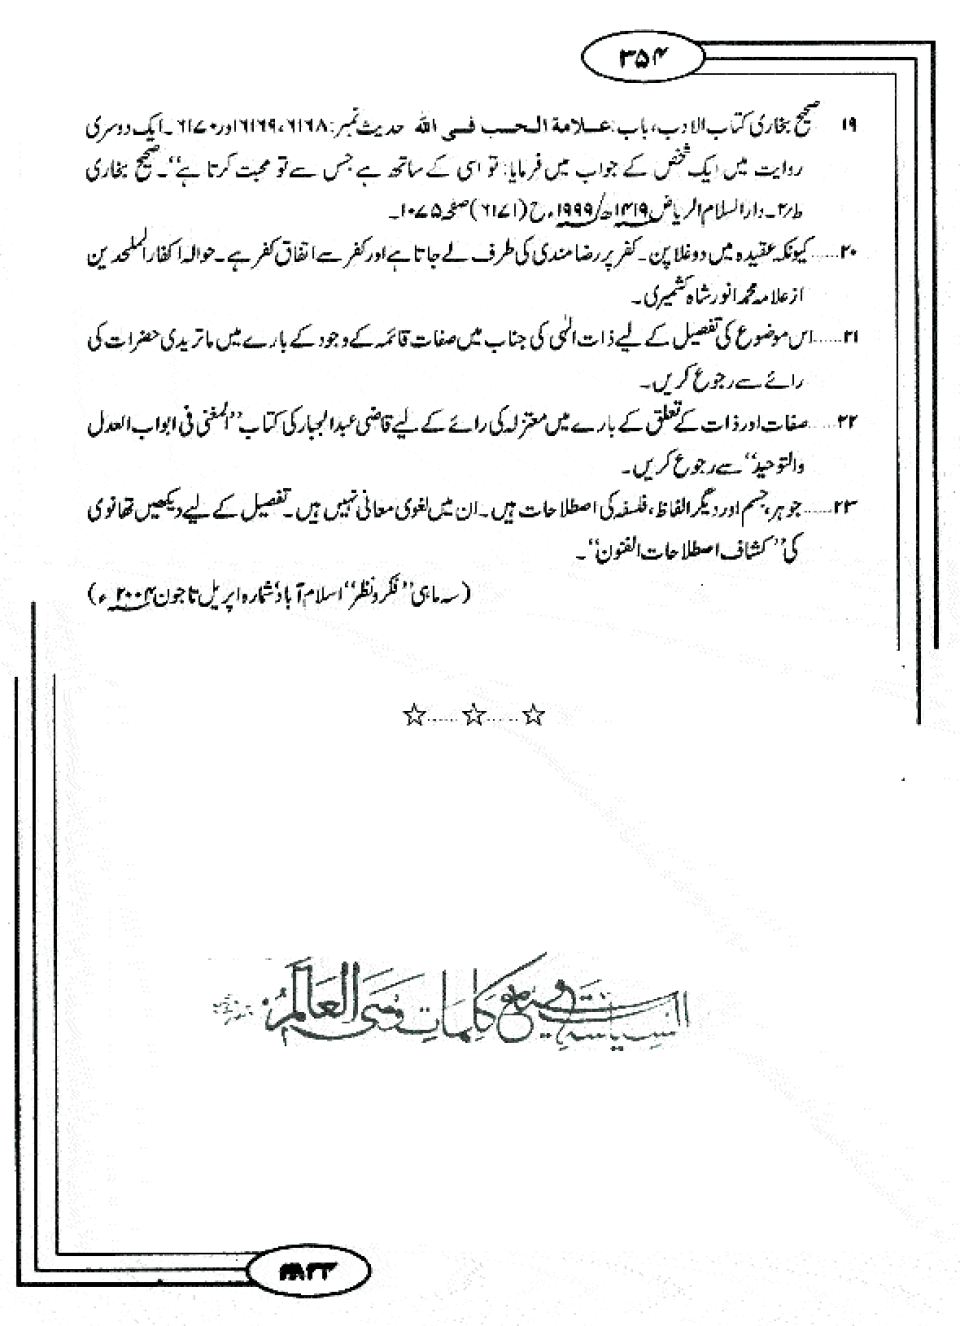 ۳۵۴
۱۹ صحیح بخاری کتاب الادب، باب: علامة الحب فی الله حدیث نمبر: ۶۱۶۸، ۶۱۶۹ اور ۶۱۷۰۔ ایک دوسری
روایت میں ایک شخص کے جواب میں فرمایا: تو اسی کے ساتھ ہے جس سے تو محبت کرتا ہے“۔ صحیح بخاری
ط/۲۔ دارالسلام الریاض ۱۴۱۹ھ/۱۹۹۹ء ح (۶۱۷۱) صفحہ ۱۰۷۵۔
۲۰..... کیونکہ عقیدہ میں دوغلاپن۔ کفر پر رضامندی کی طرف لے جاتا ہے اور کفر سے اتفاق کفر ہے۔ حوالہ اکفار الملحدین
از علامہ محمد انور شاہ کشمیری۔
۲۱......اس موضوع کی تفصیل کے لیے ذات الٰہی کی جناب میں صفات قائمہ کے وجود کے بارے میں ماتریدی حضرات کی
رائے سے رجوع کریں۔
۲۲..... صفات اور ذات کے تعلق کے بارے میں معتزلہ کی رائے کے لیے قاضی عبدالجبار کی کتاب ”المغنی فی ابواب العدل
والتوحید“ سے رجوع کریں۔
۲۳..... جوہر، جسم اور دیگر الفاظ، فلسفہ کی اصطلاحات ہیں۔ ان میں لغوی معانی نہیں ہیں۔ تفصیل کے لیے دیکھیں تھانوی
کی ”کشاف اصطلاحات الفنون“۔
(سہ ماہی ”فکرونظر“ اسلام آباد شمارہ اپریل تا جون ۲۰۰۴ء)